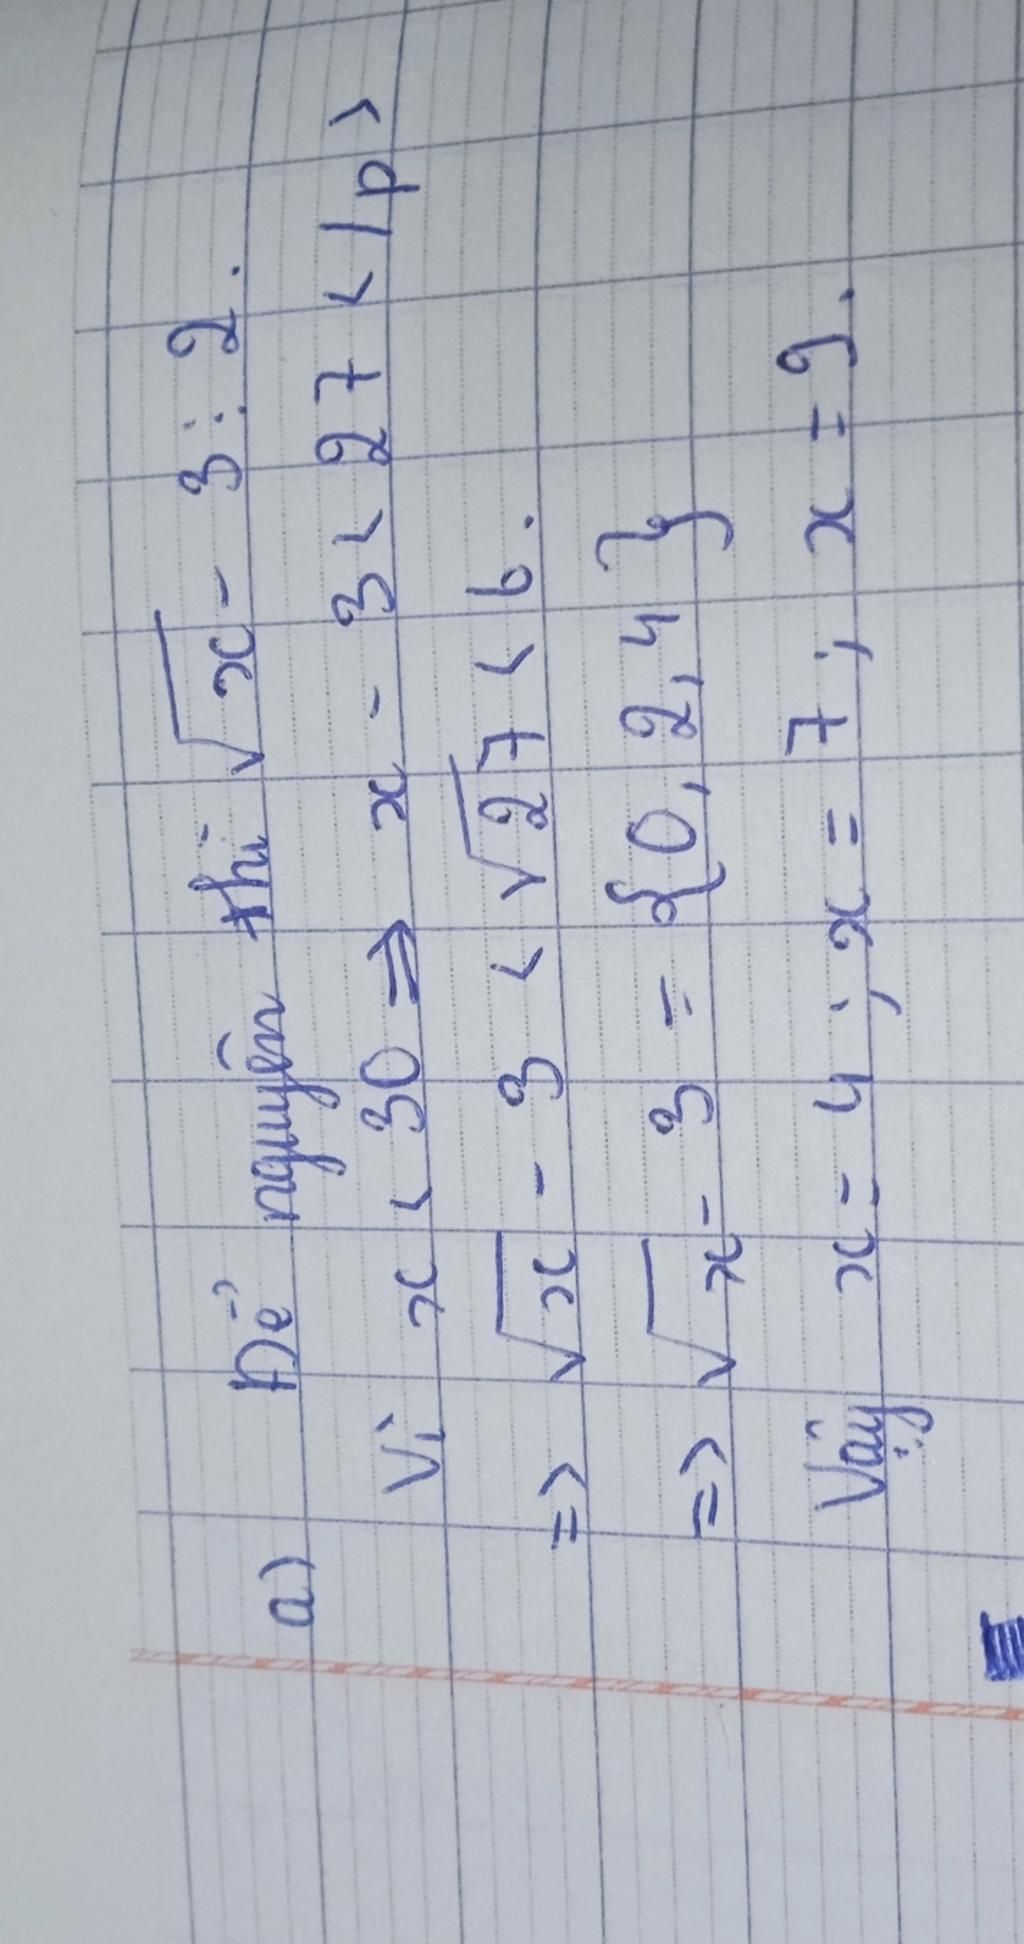 a) Để nguyên thì √x - 3 ⋮ 2.
Vì x < 30 => x - 3 < 27 </p>
=> √x - 3 < √27 < 6.
=> √x - 3 = {0, 2, 4}
Vậy x = 4; x = 7; x = 9.